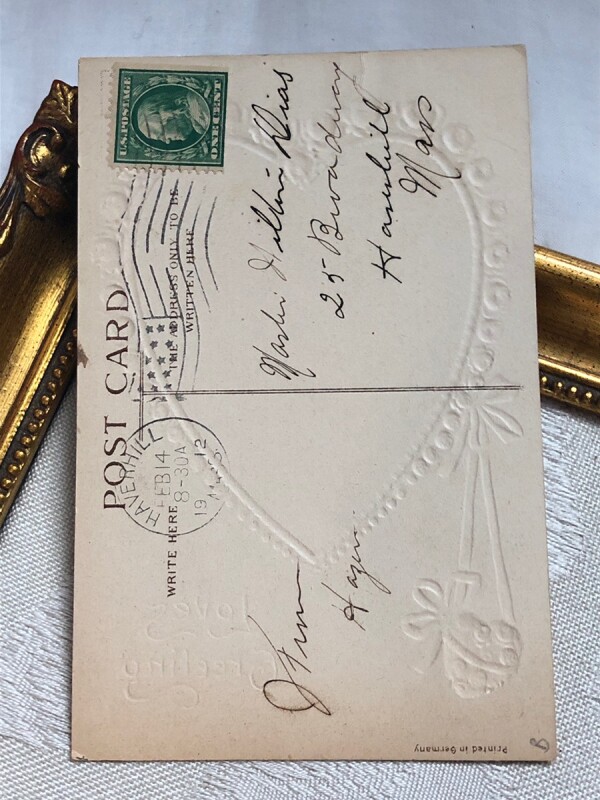 POST CARD
U.S. POSTAGE
ONE CENT
THE ADDRESS ONLY TO BE
WRITTEN HERE
HAVERHILL
FEB 14
8-30A
1912
MASS.
WRITE HERE
From
Hazen
Master Dias
25 Broadway
Haverhill
Mass
Printed in Germany
B